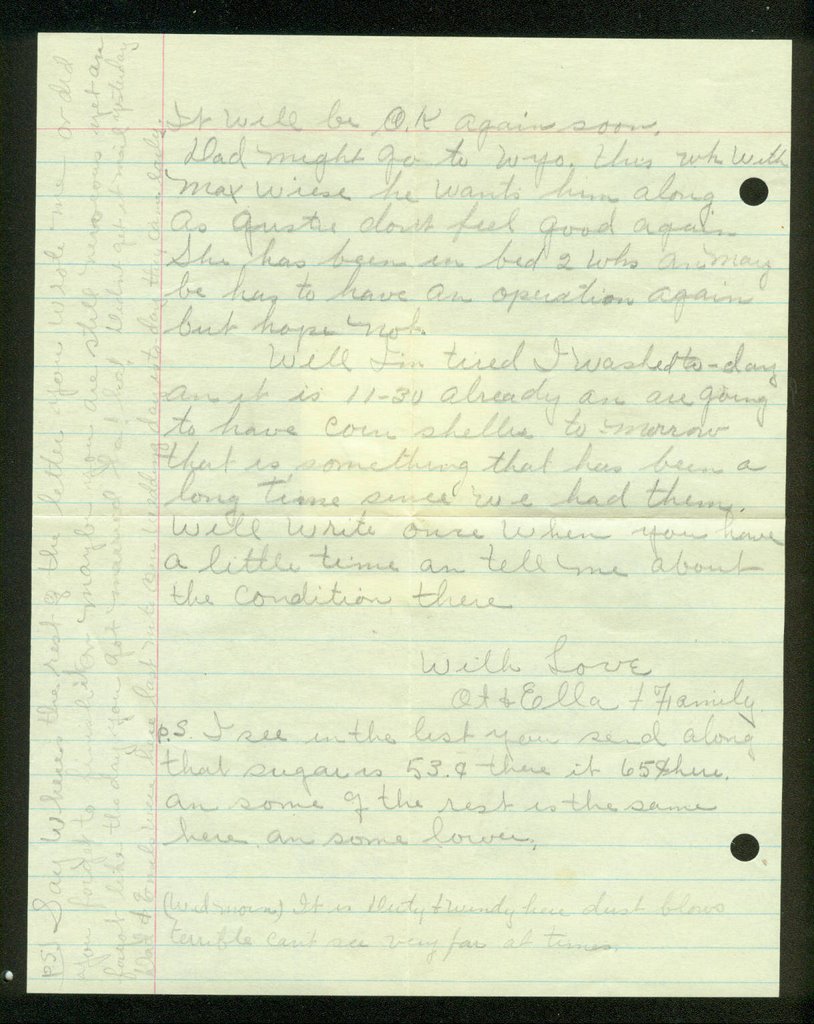 It will be O.K again soon.
Dad might go to Wyo. this wk with
Max Wiese he wants him along
as Gustie dont feel good again
She has been in bed 2 wks an may
be has to have an operation again
but hope not.
Well I'm tired I washed to-day
an it is 11-30 already an are going
to have corn sheller to-morrow
that is something that has been a
long time since we had them.
Will write once when you have
a little time an tell me about
the condition there
With Love
Ella & Family
P.S. I see in the list you send along
that sugar is 53.¢ there it 65¢ here.
an some of the rest is the same
here an some lower.
(Wed morn) It is Dirty & windy here dust blows
terrible cant see very far at times.
P.S. Say Where's the rest of the letter you wrote me or did
you forget to finish it or maybe you are still nervous yet an
forgot like the day you got married that had didnt get it mail yesterday
Dad &